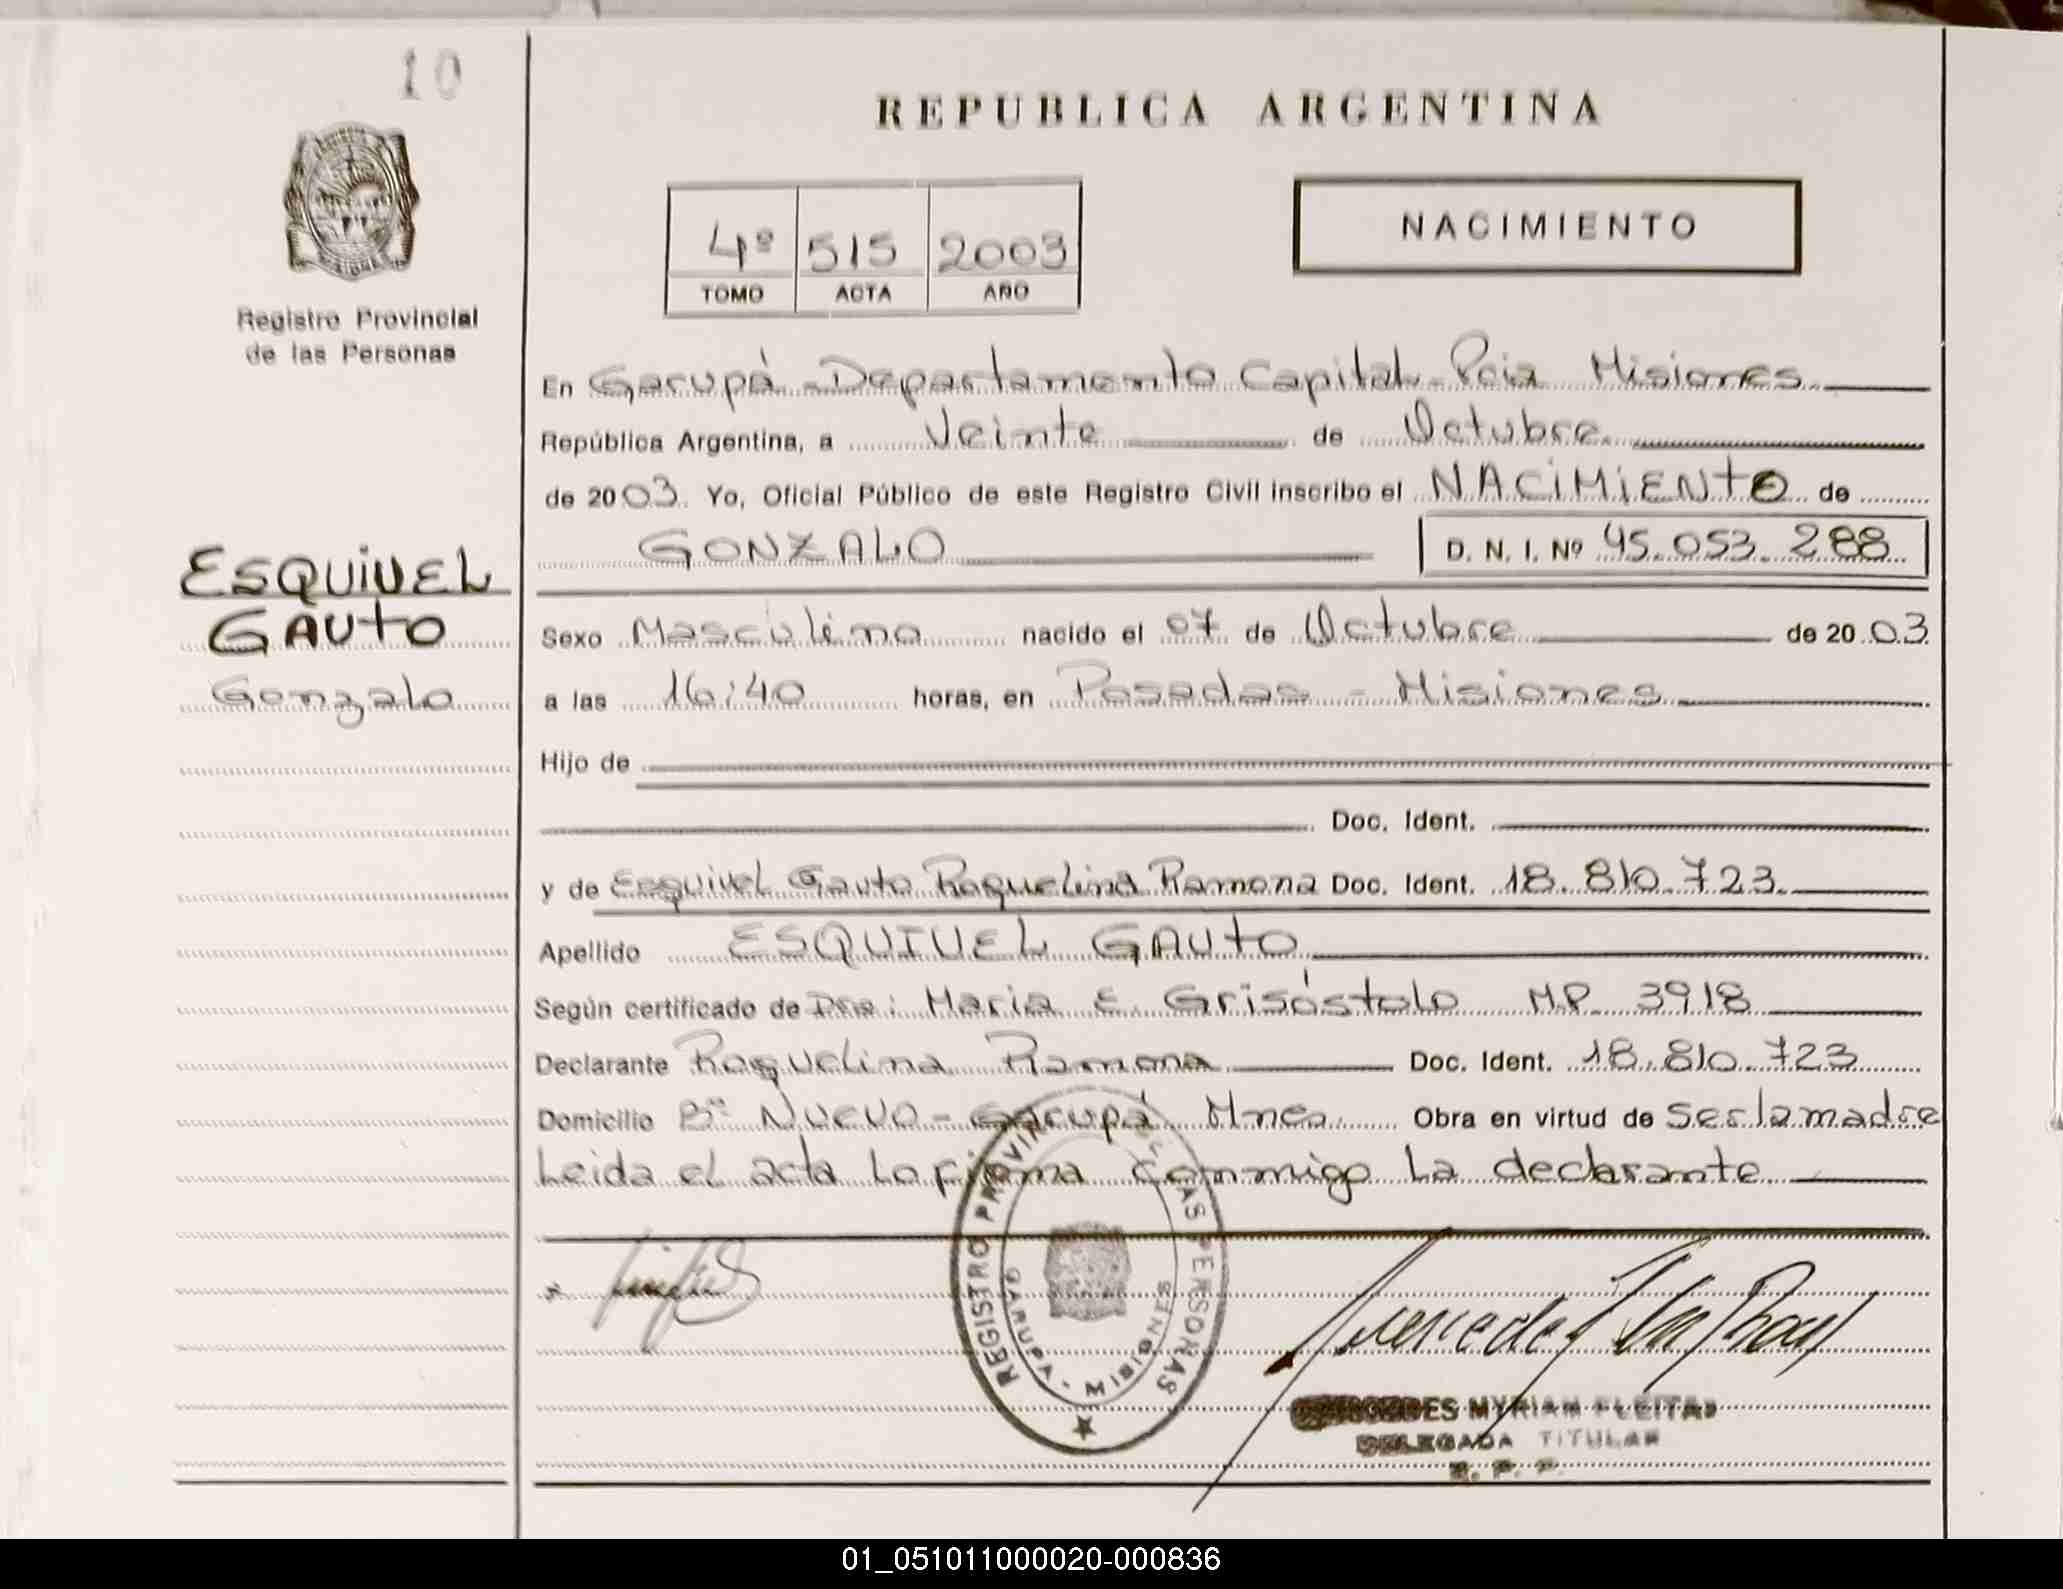 10
REPUBLICA ARGENTINA
NACIMIENTO
4º 515 2003
TOMO ACTA AÑO
Registro Provincial
de las Personas
En Garupá - Departamento Capital - Pcia Misiones
República Argentina, a Veinte de Octubre
de 2003. Yo, Oficial Público de este Registro Civil inscribo el NACIMIENTO de
GONZALO D. N. I. Nº 45.053.288
ESQUIVEL
GAUTO
Gonzalo
Sexo Masculino nacido el 07 de Octubre de 2003
a las 16:40 horas, en Posadas - Misiones
Hijo de
Doc. Ident.
y de Esquivel Gauto Roquelina Ramona Doc. Ident. 18.810.723
Apellido ESQUIVEL GAUTO
Según certificado de Dra: Maria E Grisóstolo M.P. 3918
Declarante Roquelina Ramona Doc. Ident. 18.810.723
Domicilio Bº Nuevo - Garupá Mnes. Obra en virtud de Ser la madre
Leida el acta La firma conmigo La declarante
REGISTRO PROVINCIAL DE LAS PERSONAS
GARUPA - MISIONES
MERCEDES MYRIAM FLEITAS
DELEGADA TITULAR
R. P. P.
01_051011000020-000836